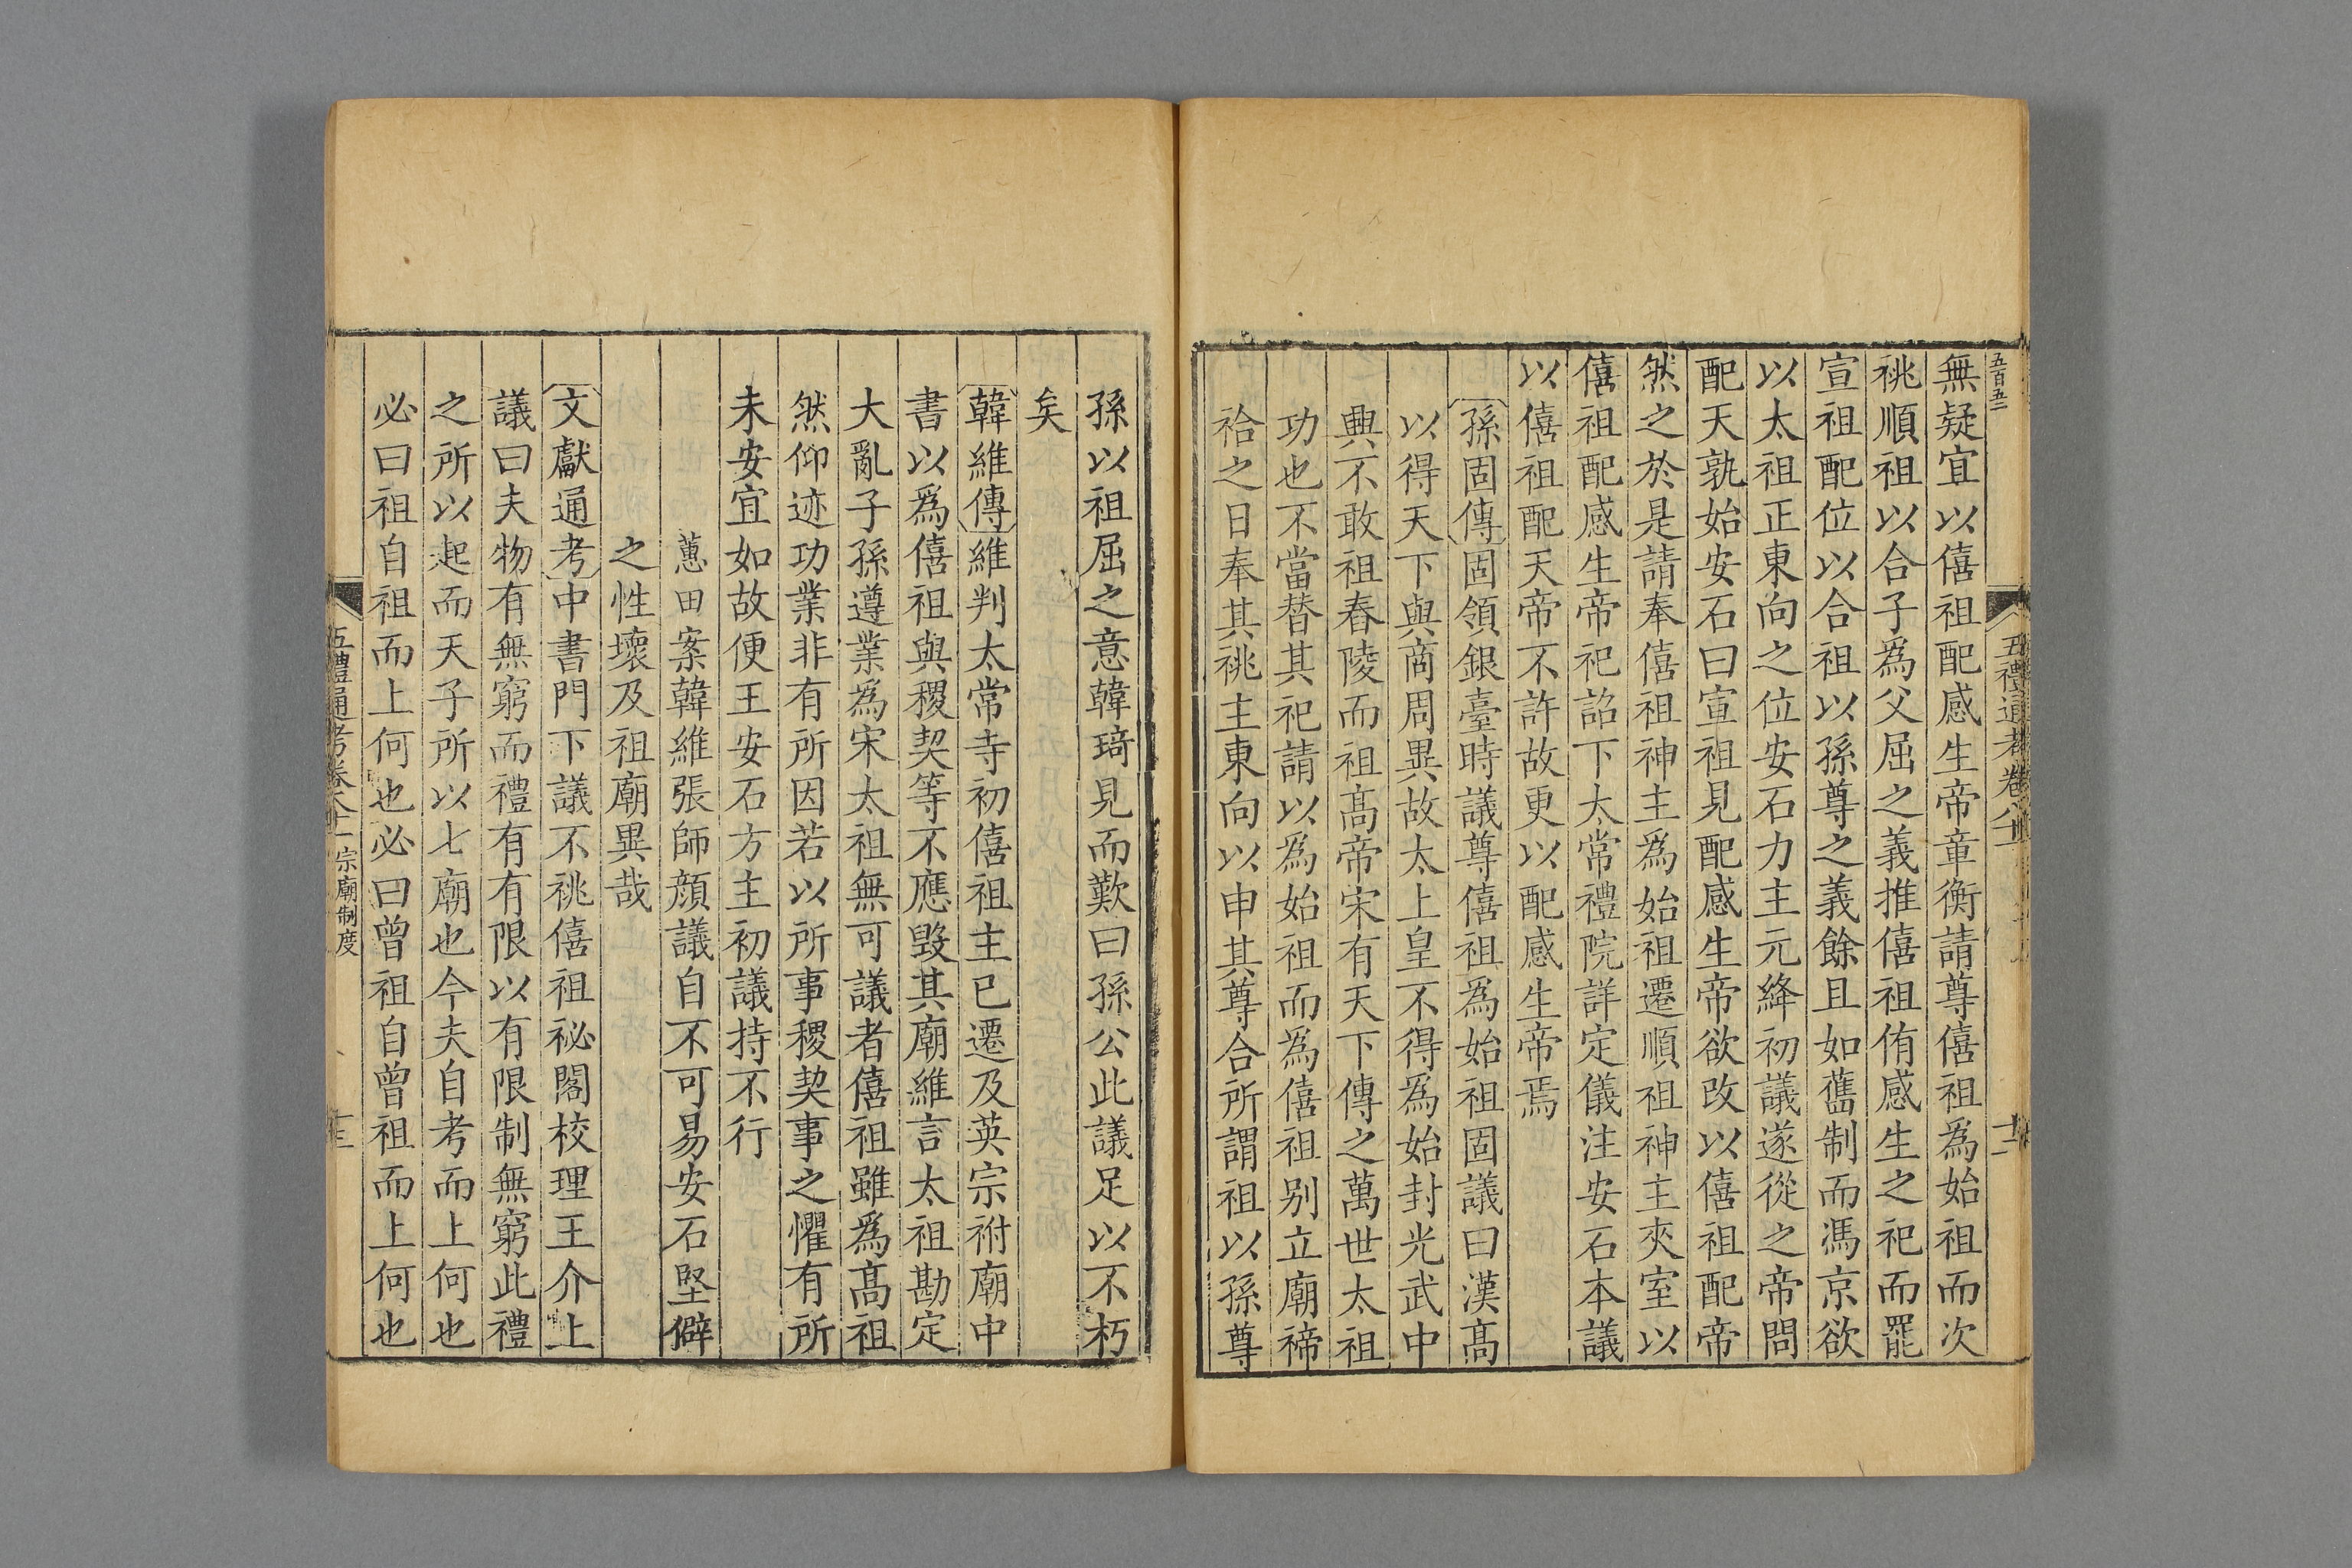 五百五二
五禮通考卷八十一
十二
無疑宜以僖祖配感生帝章衡請尊僖祖為始祖而次
祧順祖以合子為父屈之義推僖祖侑感生之祀而罷
宣祖配位以合祖以孫尊之義餘且如舊制而馮京欲
以太祖正東向之位安石力主元絳初議遂從之帝問
配天孰始安石曰宣祖見配感生帝欲改以僖祖配帝
然之於是請奉僖祖神主為始祖遷順祖神主夾室以
僖祖配感生帝祀詔下太常禮院詳定儀注安石本議
以僖祖配天帝不許故更以配感生帝焉
孫固傳固領銀臺時議尊僖祖為始祖固議曰漢高
以得天下與商周異故太上皇不得為始封光武中
興不敢祖舂陵而祖高帝宋有天下傳之萬世太祖
功也不當替其祀請以為始祖而為僖祖别立廟禘
祫之日奉其祧主東向以申其尊合所謂祖以孫尊
孫以祖屈之意韓琦見而歎曰孫公此議足以不朽
矣
韓維傳維判太常寺初僖祖主已遷及英宗祔廟中
書以爲僖祖與稷契等不應毀其廟維言太祖勘定
大亂子孫遵業爲宋太祖無可議者僖祖雖爲高祖
然仰迹功業非有所因若以所事稷契事之懼有所
未安宜如故便王安石方主初議持不行
蕙田案韓維張師顔議自不可易安石堅僻
之性壞及祖廟異哉
文獻通考中書門下議不祧僖祖祕閣校理王介上
議曰夫物有無窮而禮有有限以有限制無窮此禮
之所以起而天子所以七廟也今夫自考而上何也
必曰祖自祖而上何也必曰曾祖自曾祖而上何也
五禮通考卷八十一 宗廟制度
十三